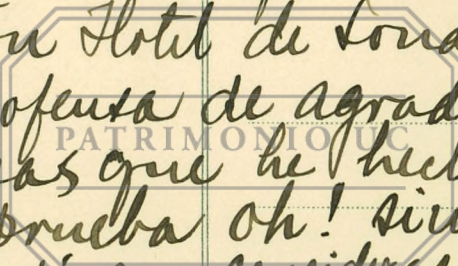 un Hotel de Lond
ofensa de agrad
PATRIMONIO UC
as que he hech
prueba oh! sin